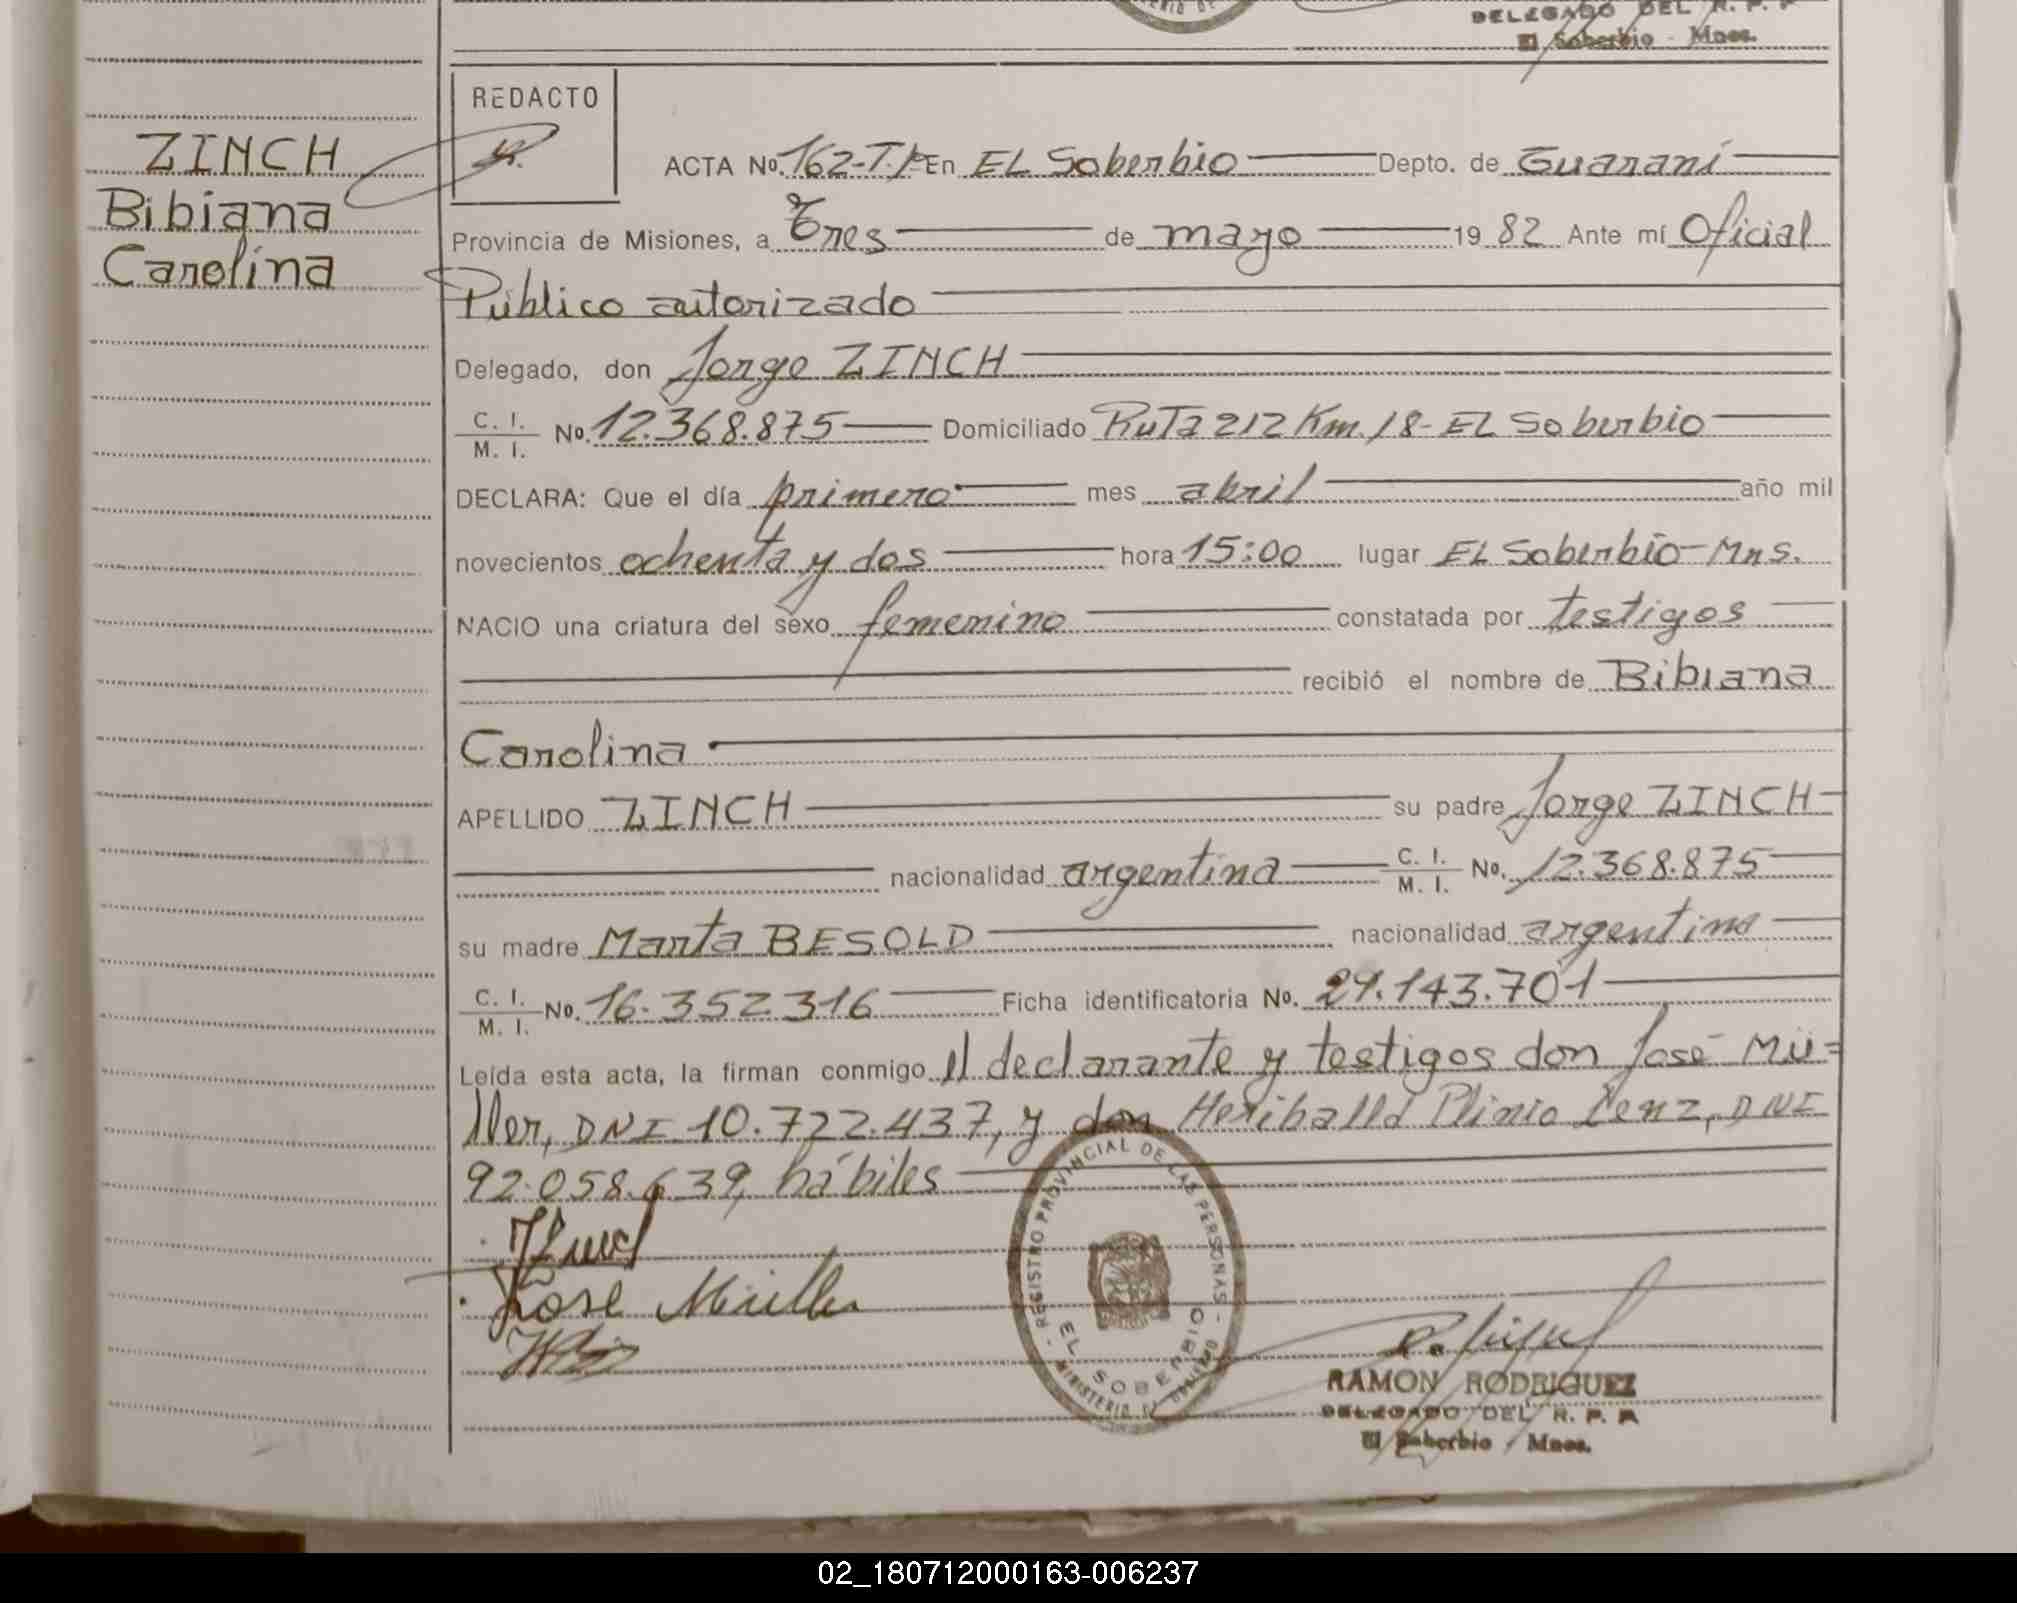 DELEGADO DEL R. P. P
El Soberbio - Mnes.
REDACTO
ZINCH
Bibiana
Carolina
ACTA No. 162-T.I- En EL Soberbio Depto. de Guaraní
Provincia de Misiones, a Tres de mayo 19 82 Ante mí Oficial
Público autorizado
Delegado, don Jorge ZINCH
C. I.
M. I. No. 12.368.875 Domiciliado RuTa 212 Km 18- EL Soberbio
DECLARA: Que el día primero mes abril año mil
novecientos ochenta y dos hora 15:00 lugar EL Soberbio-Mns.
NACIO una criatura del sexo femenino constatada por testigos
recibió el nombre de Bibiana
Carolina
APELLIDO ZINCH su padre Jorge ZINCH
nacionalidad argentina C. I.
M. I. No. 12.368.875
su madre Marta BESOLD nacionalidad argentina
C. I.
M. I. No. 16.352.316 Ficha identificatoria No. 29.143.701
Leída esta acta, la firman conmigo el declarante y testigos don José Mü=
ller, DNI 10.722.437, y don Heribaldo Plinio Lenz, DNI
92.058.639, hábiles
José Müller
REGISTRO PROVINCIAL DE LAS PERSONAS - EL SOBERBIO
MINISTERIO DE GOBIERNO
RAMON RODRIGUEZ
DELEGADO DEL R. P. P
El Soberbio - Mnes.
02_180712000163-006237